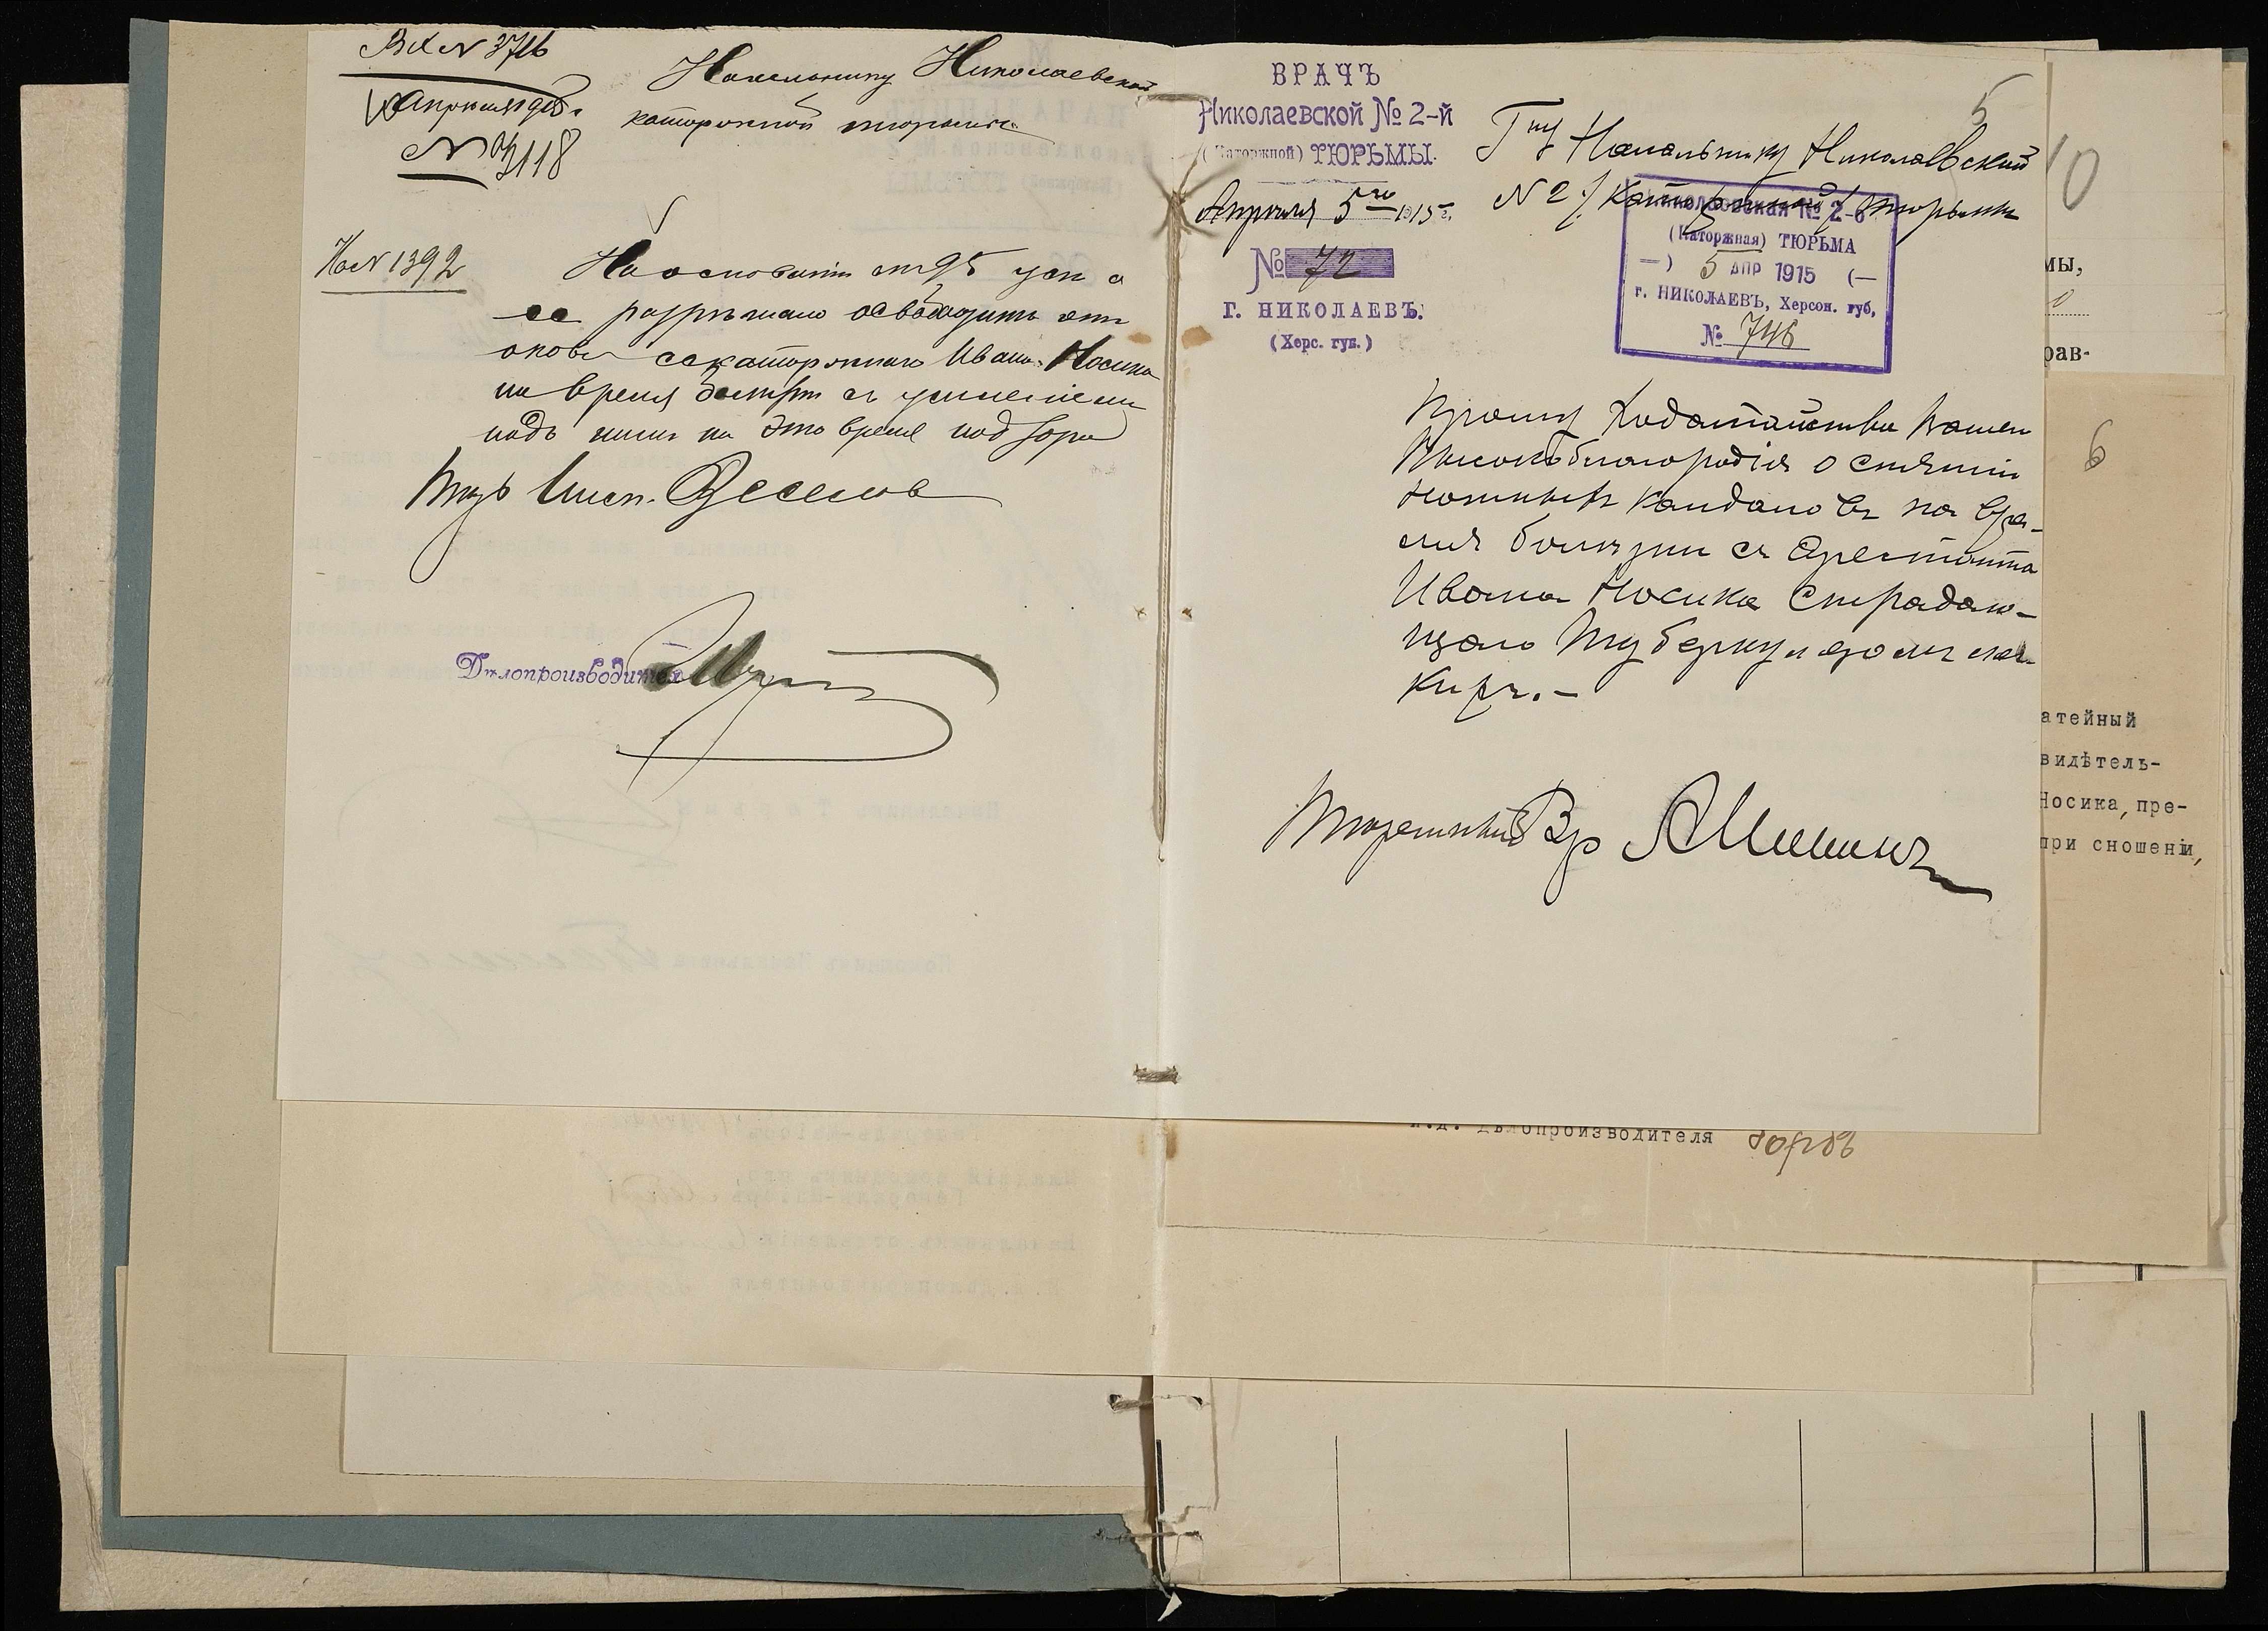 Вх № 3716
10 апреля 1915 г.
№ 3118
Начальнику Николаевской
каторжной тюрьмы
На № 1392
На основаніи ст 95 уст о
сс разрѣшаю освободить отъ
оковъ сс каторжнаго Ивана Носика
на время болѣзни съ усиленіемъ
надъ нимъ на это время надзора
Тюр Инсп.
Дѣлопроизводитель
ВРАЧЪ
Николаевской № 2-й
(Каторжной) ТЮРЬМЫ.
Апрѣля 5го 1915 г.
№ 72
Г. НИКОЛАЕВЪ.
(Херс. губ.)
5
Гну Начальнику Николаевской
№ 2 /Каторжной/ тюрьмы
Николаевская № 2-й
(Каторжная) ТЮРЬМА
—) 5 АПР 1915 (—
г. НИКОЛАЕВЪ, Херсон. губ,
№ 746
Прошу ходатайства Вашего
Высокоблагородія о снятіи
ножныхъ кандаловъ на вре-
мя болѣзни съ арестанта
Ивана Носика страдаю-
щаго туберкулезомъ лег-
кихъ.—
Тюремный Вр
10
мы,
0
рав-
6
атейный
видѣтель-
Носика, пре-
при сношеніи,
и.д. дѣлопроизводителя